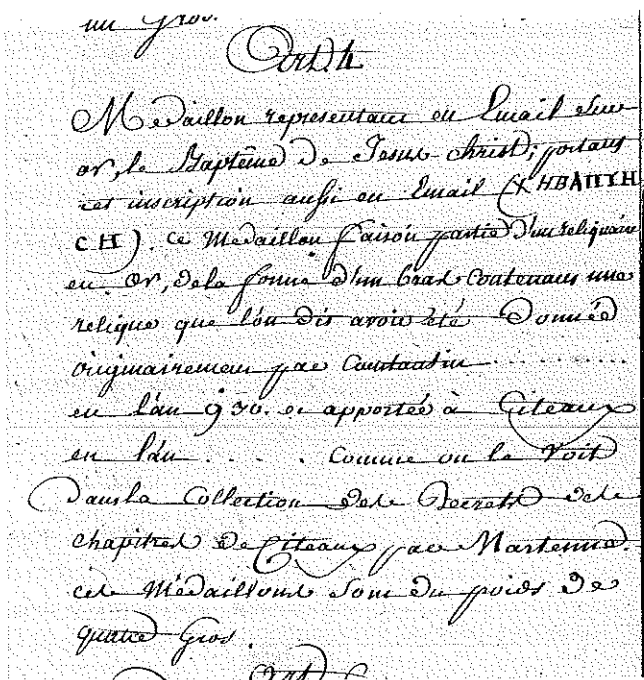 un Gros.
Art. 4
Medaillon representant en Email sur
or, le Baptême de Jesus christ; portant
cet inscription aussi en Email (✝ HBAПTYH
CH). ce Medaillon faisoit partie d'un reliquaire
en Or, de la forme d'un bras Contenant une
relique que l'on dit avoir été Donnée
originairement par Constantin . . . . . . . . .
en l'an 930. et apportée à Citeaux
en l'an . . . . . Comme on le Voit
dans la Collection des Decrets des
chapitres de Citeaux par Martenne.
ces Médaillons sont du poids de
quatre Gros.
Art.